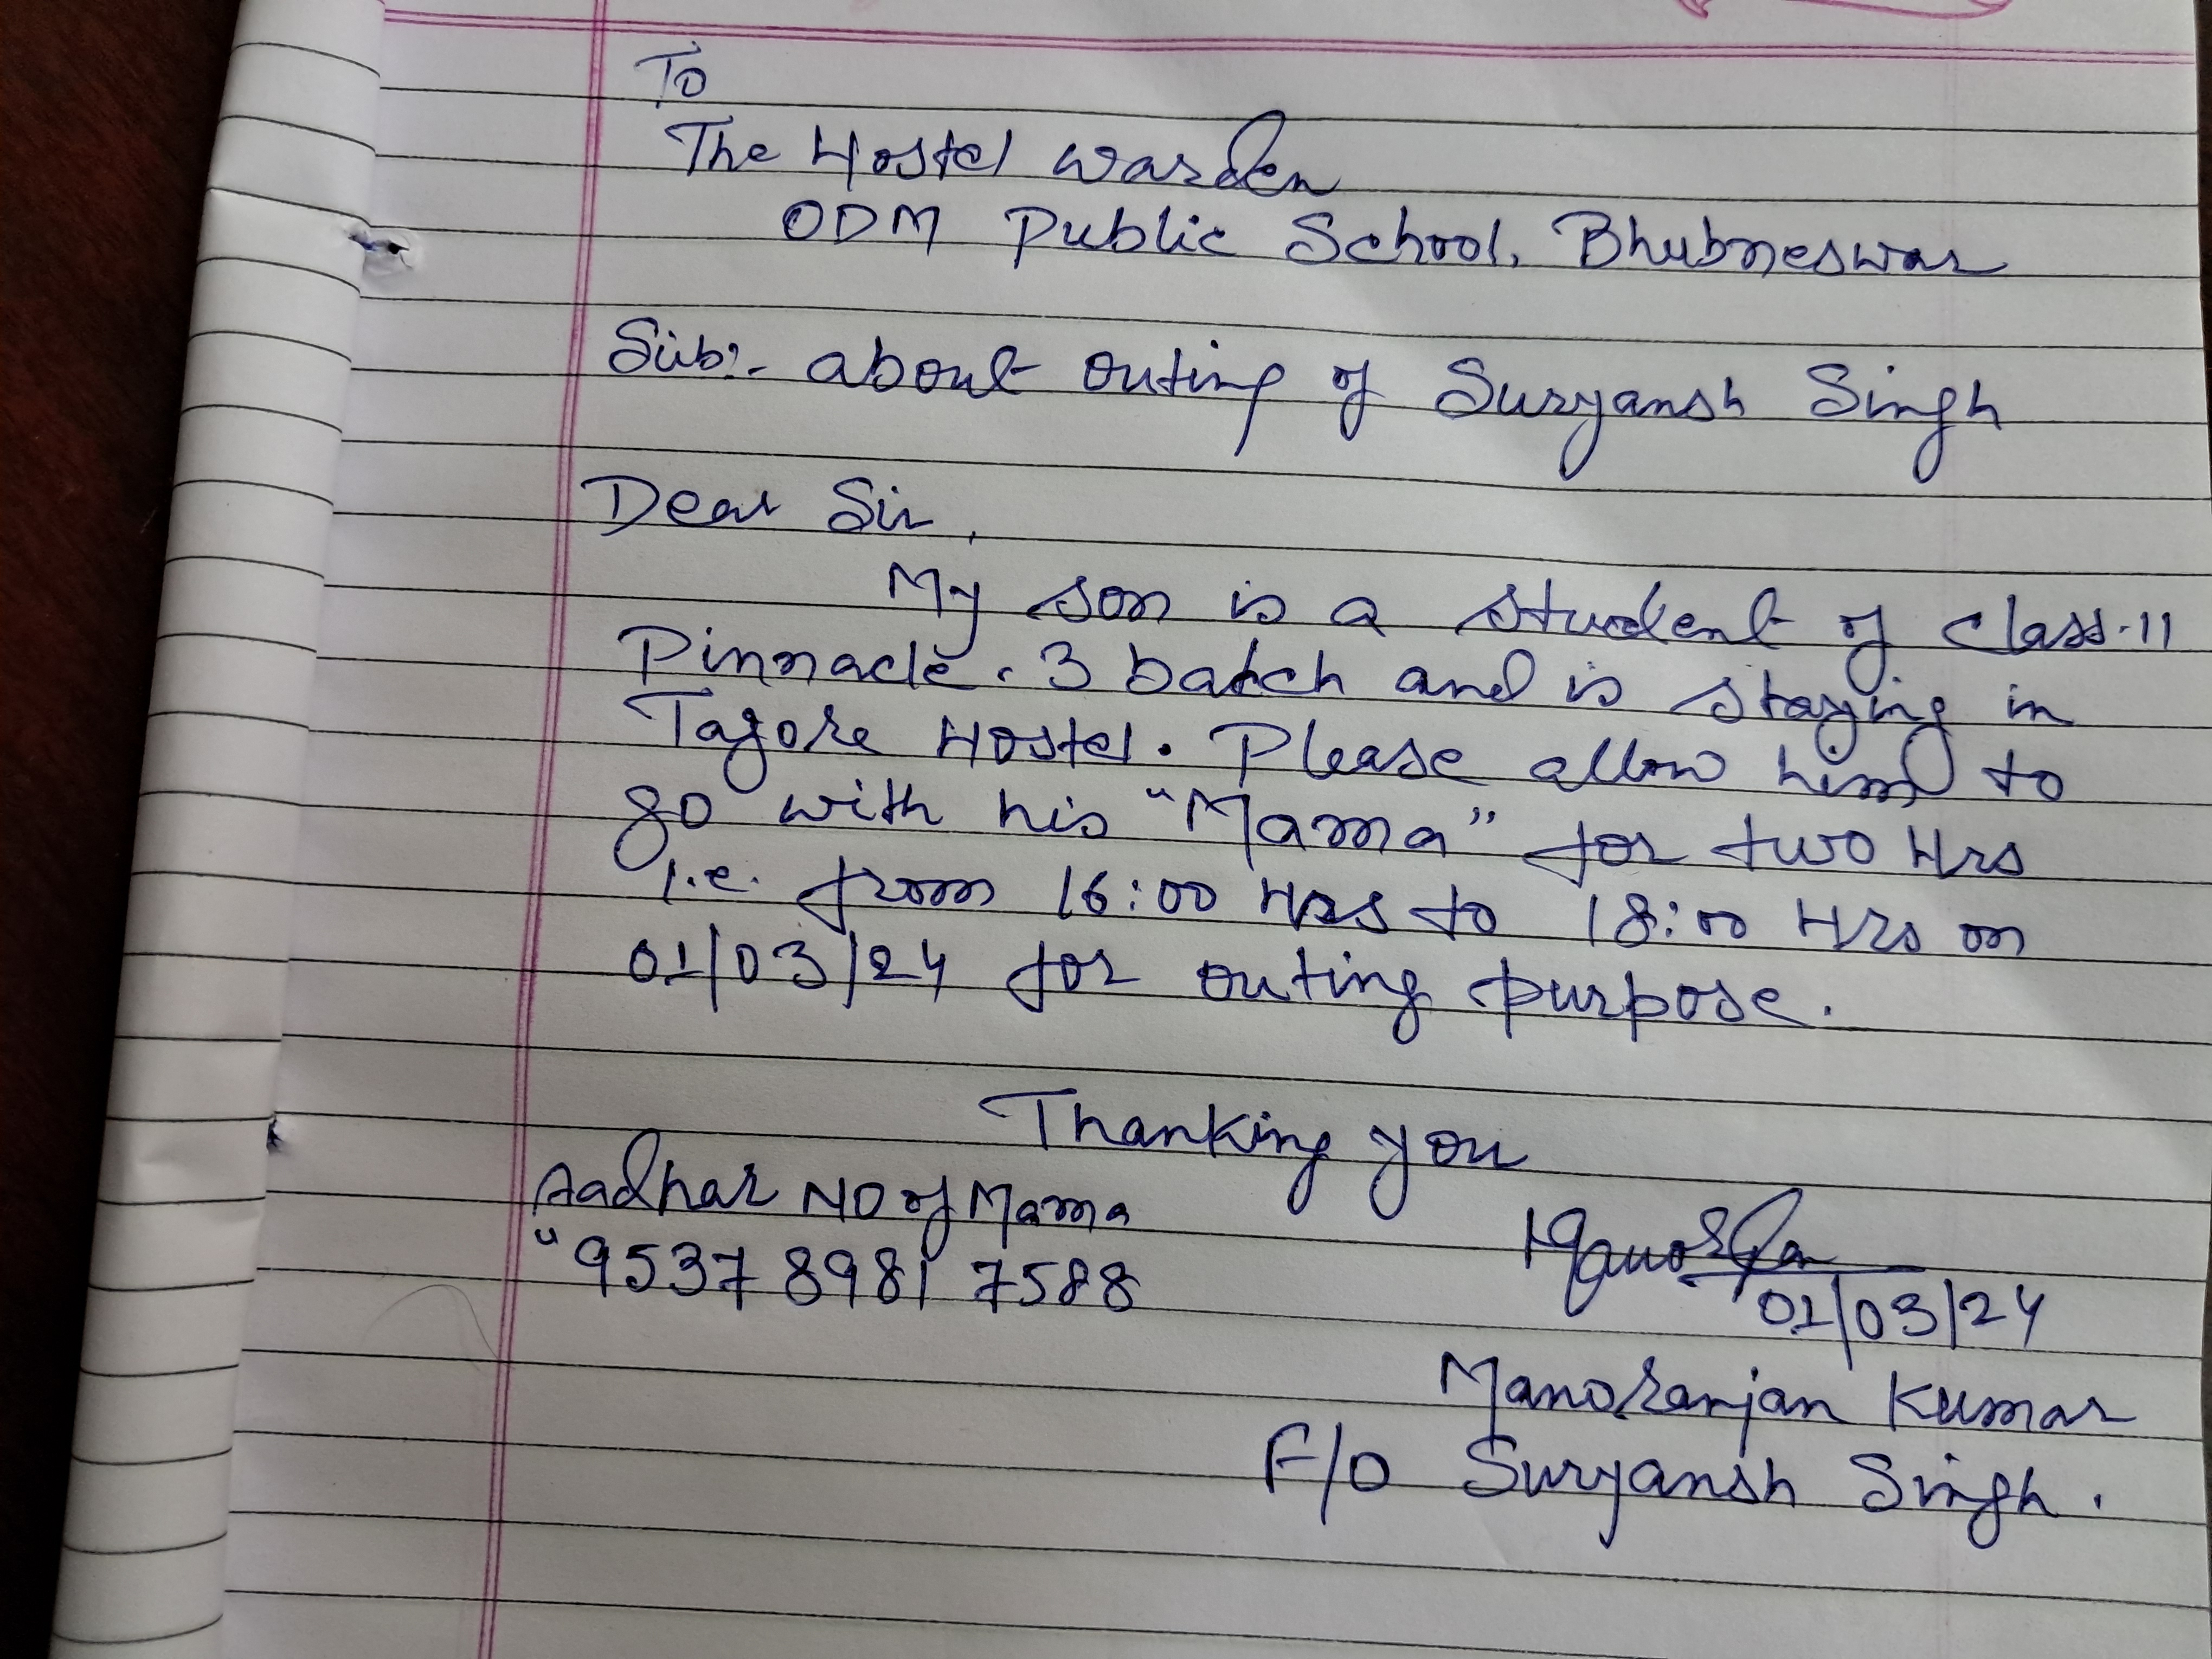 To
The Hostel Warden
ODM Public School, Bhubneswar
Sub:- about outing of Suryansh Singh
Dear Sir,
My son is a student of class-11
Pinnacle-3 batch and is staying in
Tagore Hostel. Please allow him to
go with his "Mama" for two Hrs
i.e. from 16:00 Hrs to 18:00 Hrs on
01/03/24 for outing purpose.
Thanking you
Aadhar NO of Mama
" 9537 8981 7588
01/03/24
Manoranjan Kumar
F/O Suryansh Singh.